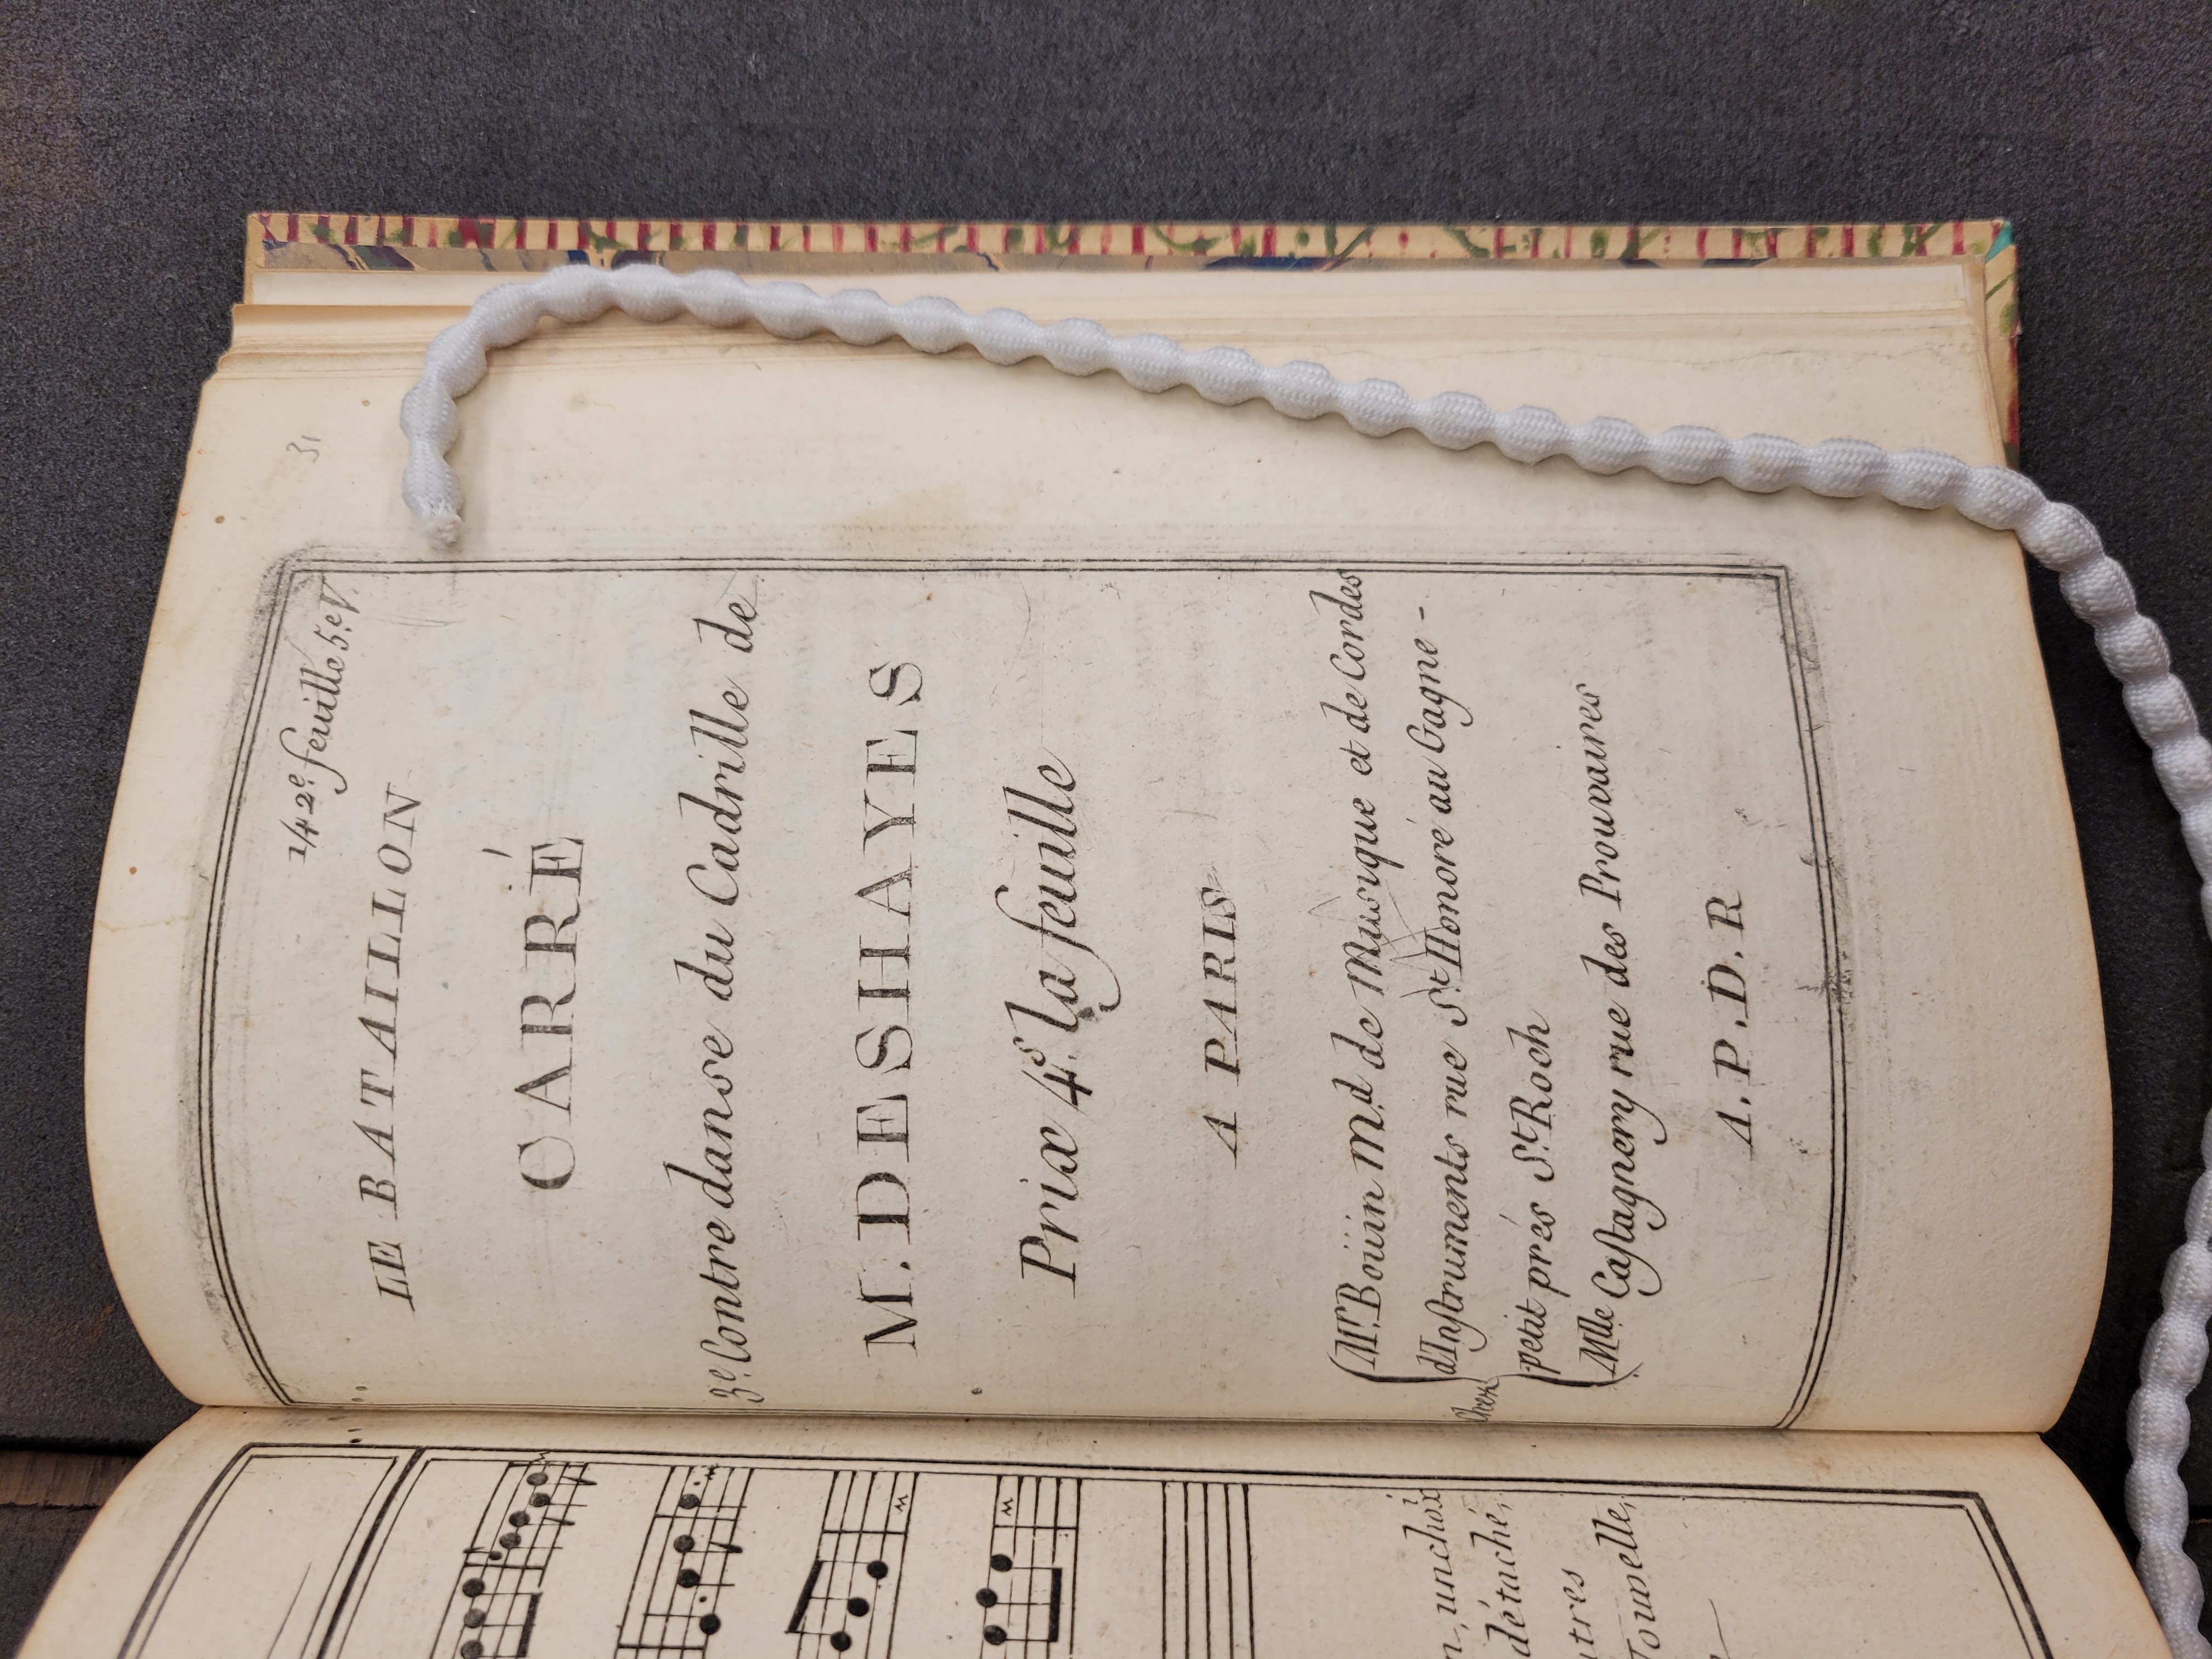 un choix
détaché,
31
142e. feuille 5.e V.
LE BATAILLON
CARRÉ
3e. Contre danse du Cadrille de
M. DESHAYES
Prix 4s. la feuille
A PARIS
Chez
Mr. Boüin Md. de Musique et de Cordes
d'Instruments rue St. Honoré au Gagne-
petit prés St. Roch
Mlle Castagnery rue des Prouvaires
A. P. D. R